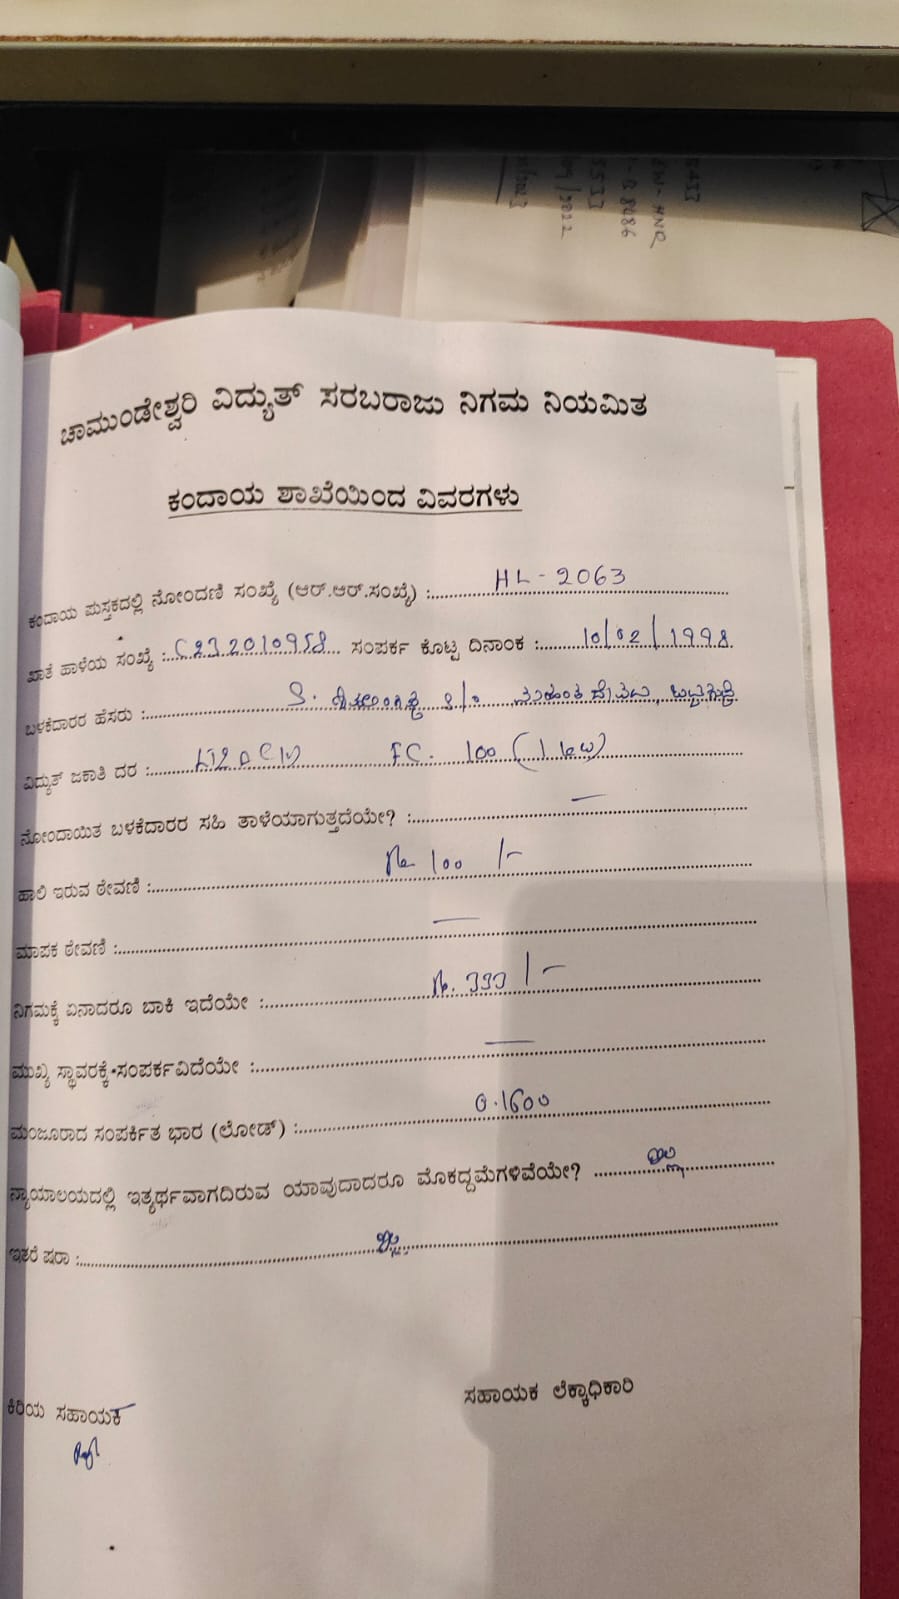 ಚಾಮುಂಡೇಶ್ವರಿ ವಿದ್ಯುತ್ ಸರಬರಾಜು ನಿಗಮ ನಿಯಮಿತ
ಕಂದಾಯ ಶಾಖೆಯಿಂದ ವಿವರಗಳು
ಕಂದಾಯ ಪುಸ್ತಕದಲ್ಲಿ ನೋಂದಣಿ ಸಂಖ್ಯೆ (ಆರ್.ಆರ್.ಸಂಖ್ಯೆ) : HL - 2063
ಖಾತೆ ಹಾಳೆಯ ಸಂಖ್ಯೆ : C232010958 ಸಂಪರ್ಕ ಕೊಟ್ಟ ದಿನಾಂಕ : 10/02/1998
ಬಳಕೆದಾರರ ಹೆಸರು : S. S/o
ವಿದ್ಯುತ್ ಜಕಾತಿ ದರ : FC. 100 (1 kw)
ನೋಂದಾಯಿತ ಬಳಕೆದಾರರ ಸಹಿ ತಾಳೆಯಾಗುತ್ತದೆಯೇ? : —
ಹಾಲಿ ಇರುವ ಠೇವಣಿ : Rs 100 /-
ಮಾಪಕ ಠೇವಣಿ : —
ನಿಗಮಕ್ಕೆ ಏನಾದರೂ ಬಾಕಿ ಇದೆಯೇ : Rs. 393 /-
ಮುಖ್ಯ ಸ್ಥಾವರಕ್ಕೆ ಸಂಪರ್ಕವಿದೆಯೇ : —
ಮಂಜೂರಾದ ಸಂಪರ್ಕಿತ ಭಾರ (ಲೋಡ್) : 0.1600
ನ್ಯಾಯಾಲಯದಲ್ಲಿ ಇತ್ಯರ್ಥವಾಗದಿರುವ ಯಾವುದಾದರೂ ಮೊಕದ್ದಮೆಗಳಿವೆಯೇ? ಇಲ್ಲ
ಇತರೆ ಷರಾ : ಇಲ್ಲ
ಸಹಾಯಕ ಲೆಕ್ಕಾಧಿಕಾರಿ
ಕಿರಿಯ ಸಹಾಯಕ